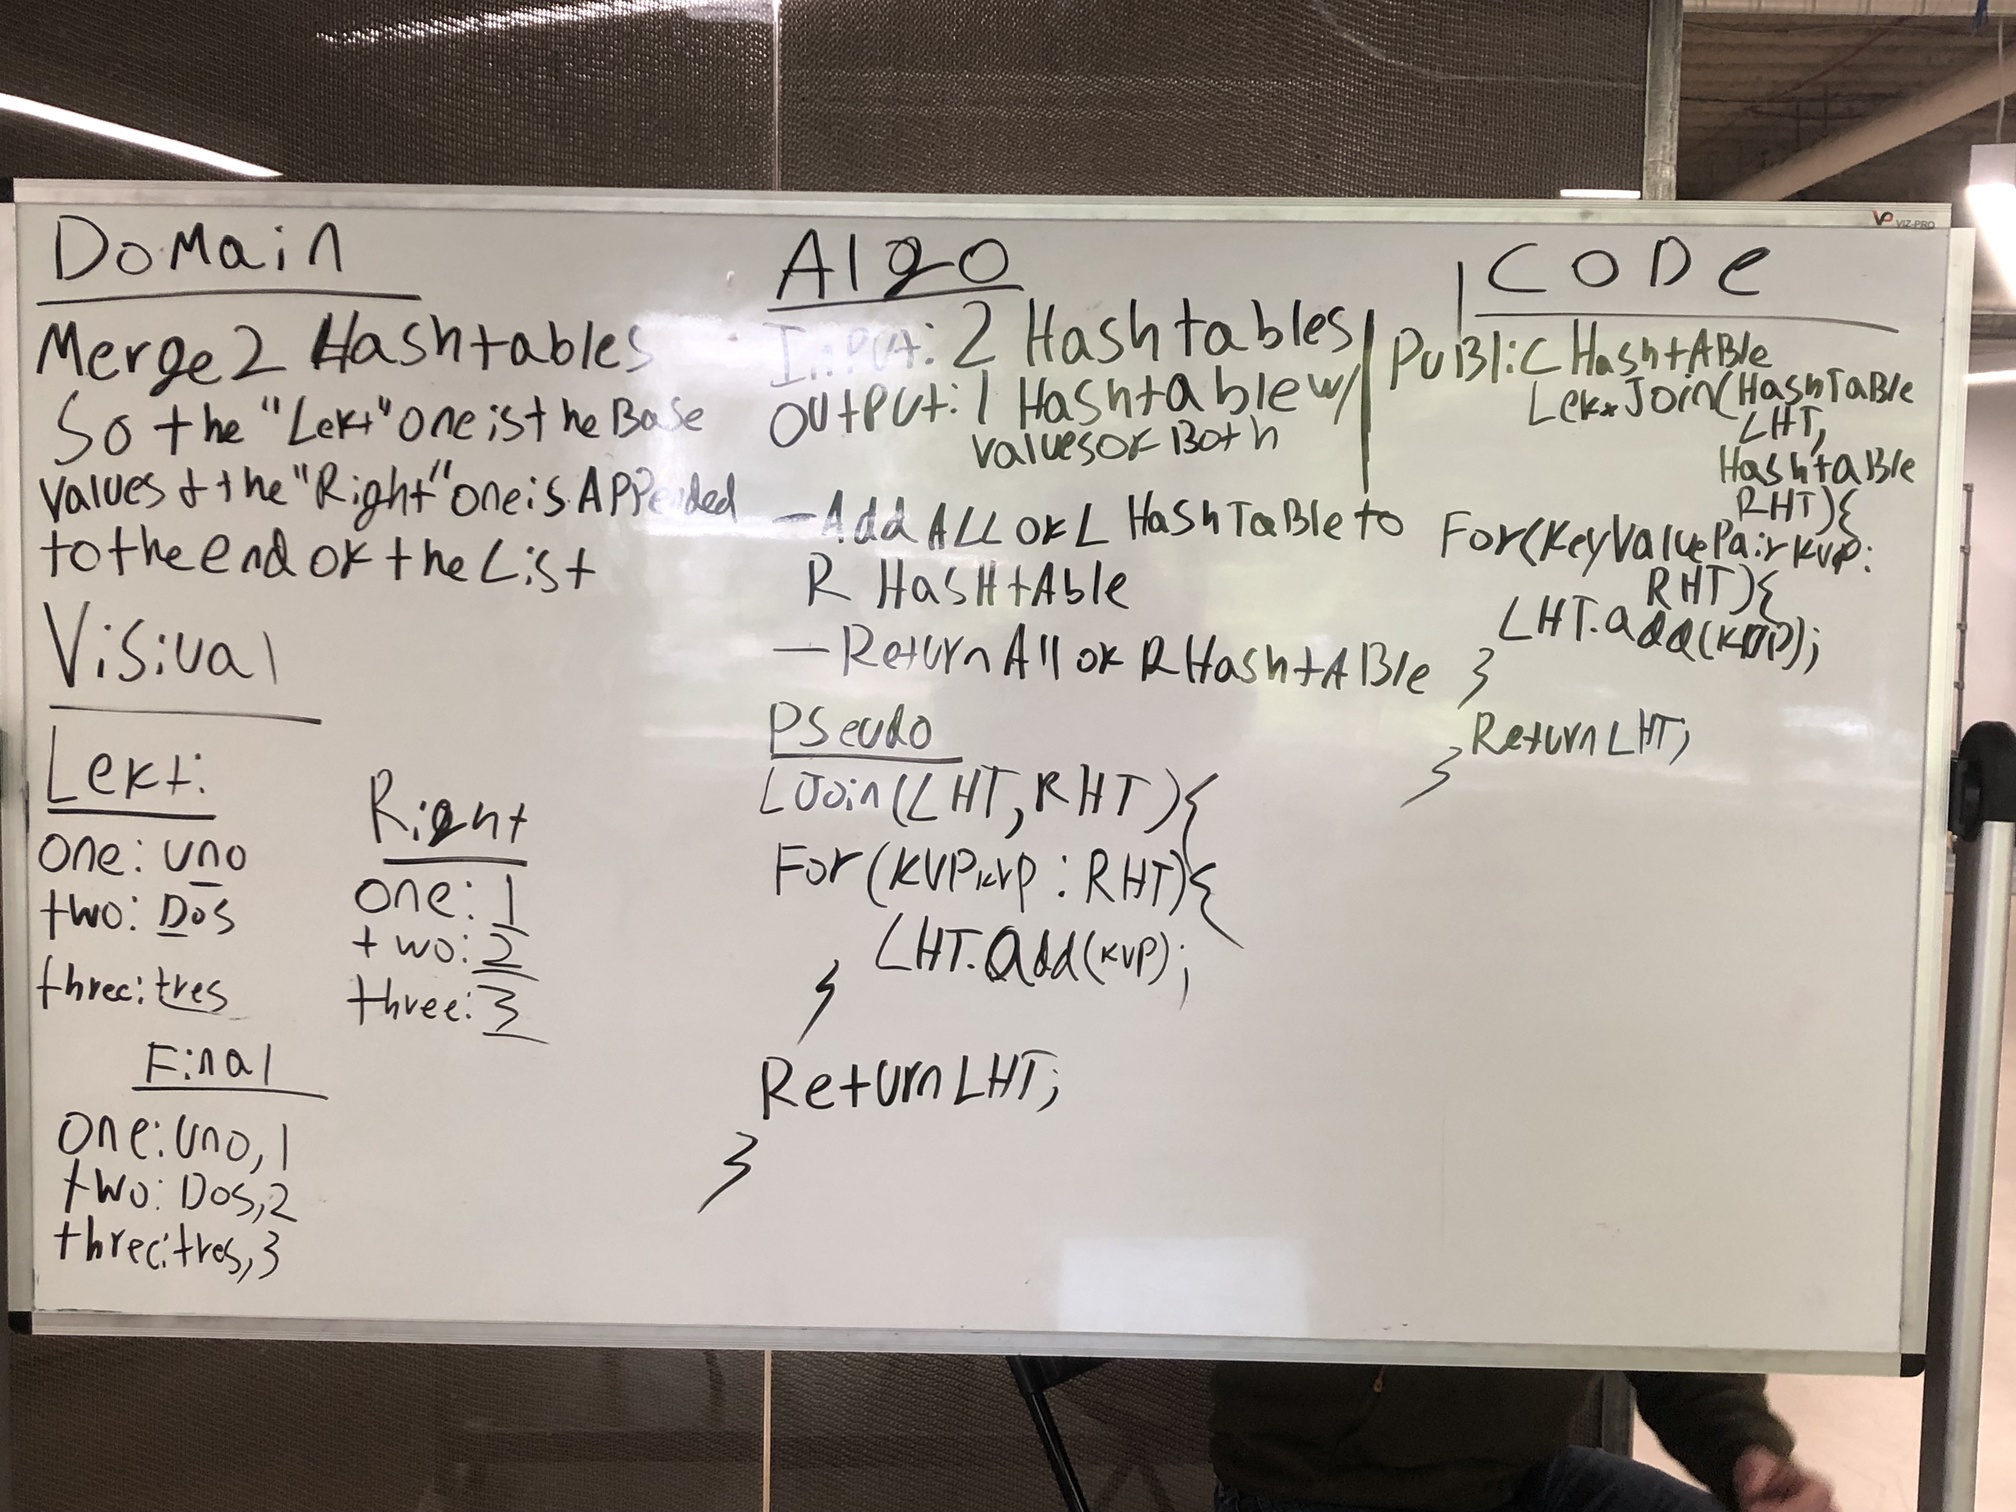 VP VIZ-PRO
Domain
Merge 2 Hashtables
So the "Left" one is the Base
values & the "Right" one is Appended
to the end of the List
Visiual
Left:
one: uno
two: Dos
three: tres
Right
one: 1
two: 2
three: 3
Final
one: uno, 1
two: Dos, 2
three: tres, 3
Algo
Input: 2 Hashtables
Output: 1 Hashtable w/
values of Both
- Add ALL of L HashTable to
R HasHtAble
- Return All of R HashtABle
Pseudo
LJoin(LHT, RHT){
For (KVP kvp : RHT){
LHT.add(kvp);
}
Return LHT;
}
CODe
PuBlic HashtABle
Left Join(HashTaBle
LHT,
HashtaBle
RHT){
For(KeyValuePair kvp:
RHT){
LHT.add(kvp);
}
Return LHT;
}